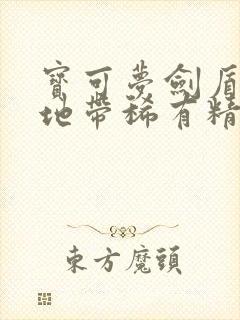 寶可夢劍盾
地帶稀有精
東方魔頭